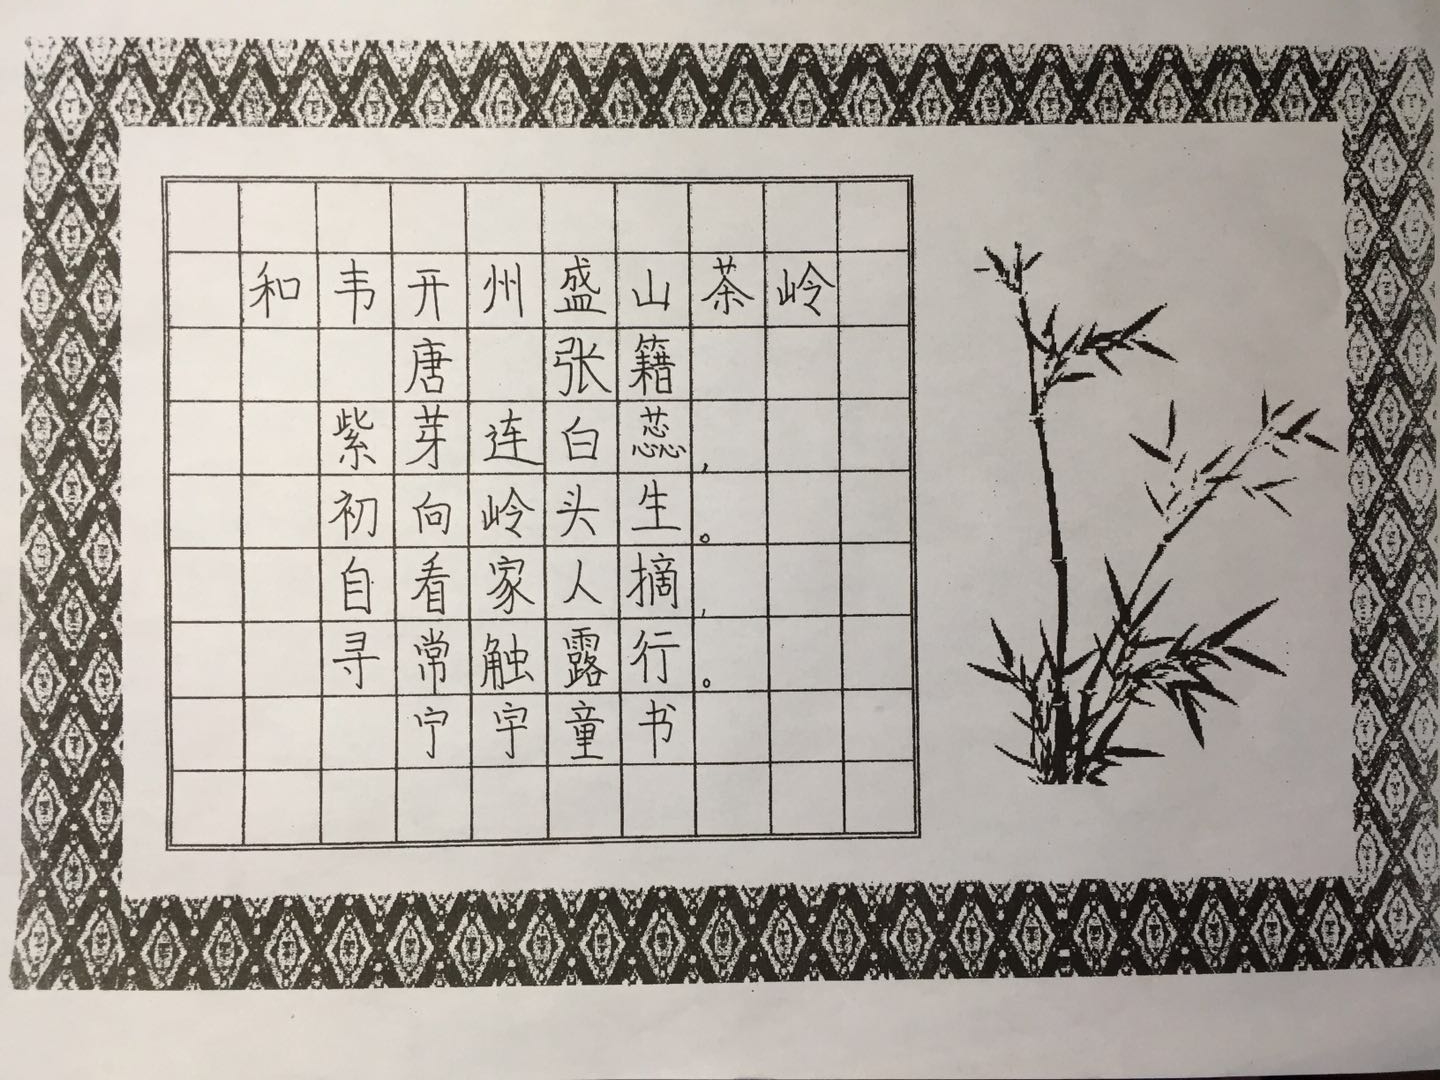 和韦开州盛山茶岭
唐 张籍
紫芽连白蕊，
初向岭头生。
自看家人摘，
寻常触露行。
宁宇童书